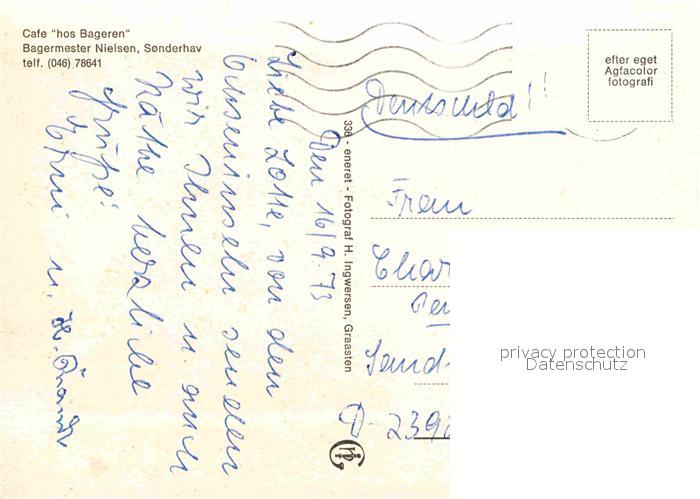 Cafe "hos Bageren"
Bagermester Nielsen, Sønderhav
telf. (046) 78641
efter eget
Agfacolor
fotografi
338 - eneret - Fotograf H. Ingwersen, Graasten
Den 16/9.73
Liebe Lotte, von den
Ochseninseln senden
wir Ihnen u. auch
Käthe herzliche
Grüße!
Erni u. H.
Deutschld!!
Frau
Char
Sand
D-239
privacy protection
Datenschutz